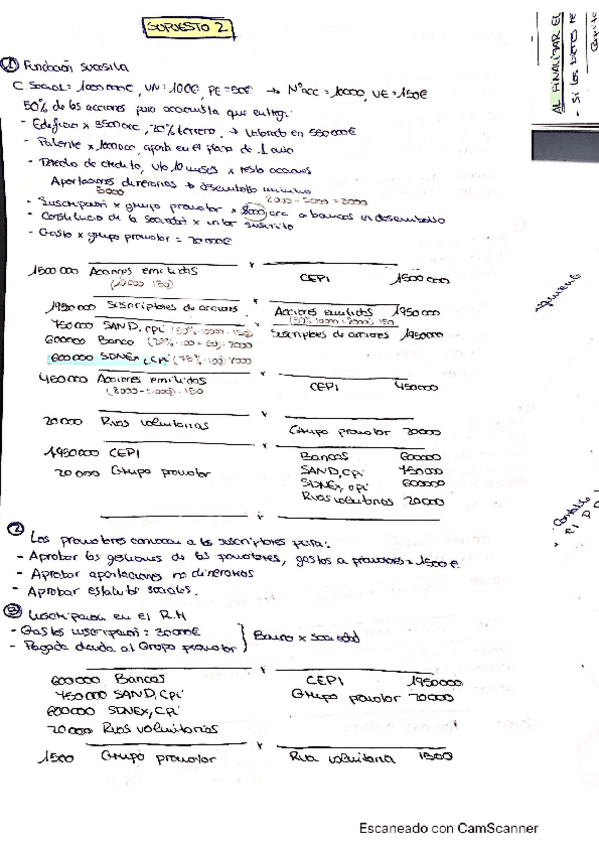 SUPUESTO 2
① Fundación sucesiva
C. Social = 1000 000€, VN = 100€, PE = 50€ → NºACC = 10000, VE = 150€
50% de las acciones para accionista que entrega:
- Edificio x 3500 acc, 20% terreno → Valorado en 550 000€
- Patente x 1000 acc, aporta en el plazo de 1 año
- Derecho de crédito, vto 10 meses x resto acciones
Aportaciones dinerarias → desembolso mínimo
5000
8000 - 5000 = 3000
- Suscripción x grupo promotor x acc a bancos in desembolso
- Constitución de la sociedad x valor suscrito
- Gastos x grupo promotor = 20 000€
1500 000 Acciones emitidas
(10000 · 150)
CEPI 1500 000
1950 000 Suscriptores de acciones
Acciones emitidas 1950 000
750 000 SAND, cpi (50% · 10000 · 150)
Suscriptores de acciones 1950000
600000 Banco
600 000 SDNEX, CPI (75% · 100)
450 000 Acciones emitidas
(8000 - 5000) · 150
CEPI 450000
20 000 Rvas voluntarias
Grupo promotor 20000
1950 000 CEPI
Bancos 600000
20 000 Grupo promotor
SAND, CPI 750000
SDNEX, CPI 600000
Rvas voluntarias 20000
② Los promotores convocan a los suscriptores para:
- Aprobar las gestiones de los promotores, gastos a promotores = 1500 €
- Aprobar aportaciones no dinerarias
- Aprobar estatutos sociales.
③ Inscripción en el R.M
- Gastos inscripción = 30 000€
- Pagada deuda al Grupo promotor
Banco x sociedad
600000 Bancos
CEPI 1950000
750 000 SAND, CPI
Grupo promotor 20000
600000 SDNEX, CPI
20000 Rvas voluntarias
1500 Grupo promotor
Rva voluntaria 1500
AL FINALIZAR EL
- Si los
Escaneado con CamScanner